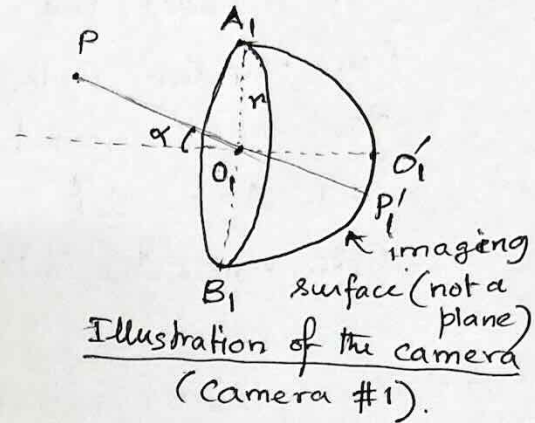 A₁
P
r
α
O₁
O₁'
P₁'
B₁
imaging
surface (not a
plane)
Illustration of the camera
(Camera #1).